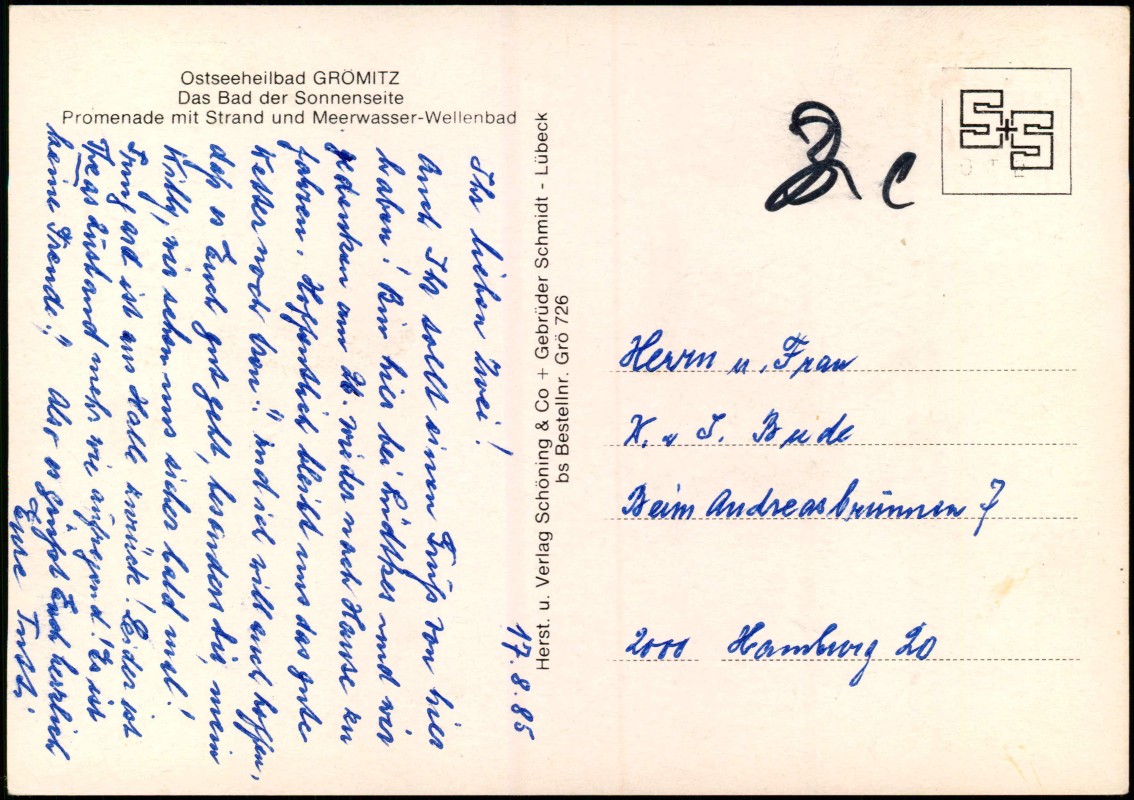 Ostseeheilbad GRÖMITZ
Das Bad der Sonnenseite
Promenade mit Strand und Meerwasser-Wellenbad
17.8.85
Ihr lieben Zwei!
Auch Ihr sollt einen Gruß von hier
haben! Bin hier bei und wir
gedenken am 26. wieder nach Hause zu
fahren. Hoffentlich bleibt uns das gute
Wetter noch treu." Und ich will auch hoffen,
daß es Euch gut geht, besonders dir, mein
Willy, wir sehen uns sicher bald mal!
Irmgard ist aus Halle zurück! Leider ist
Theas Zustand mehr wie aufregend! Es ist
keine Freude!" Also es grüßt Euch herzlich
Eure
Herst. u. Verlag Schöning & Co + Gebrüder Schmidt - Lübeck
bs Bestellnr. Grö 726
S+S
C
Herrn u. Frau
K. u J. Bude
Beim Andreasbrunnen 7
2000 Hamburg 20